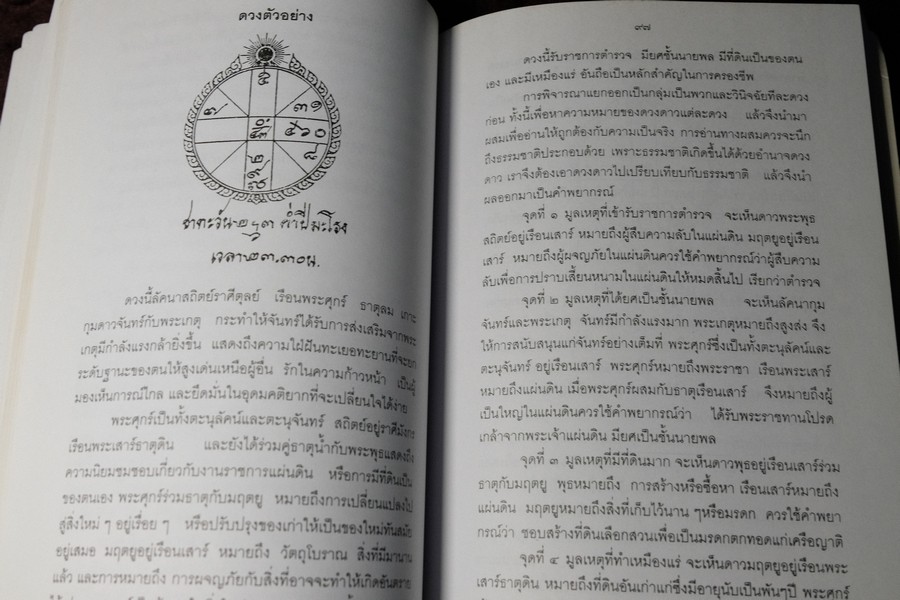 ดวงตัวอย่าง
เวลา ๒๓.๓๐ น.
ดวงนี้ลัคนาสถิตย์ราศีตุลย์ เรือนพระศุกร์ ธาตุลม เกาะ
กุมดาวจันทร์กับพระเกตุ กระทำให้จันทร์ได้รับการส่งเสริมจากพระ
เกตุมีกำลังแรงกล้ายิ่งขึ้น แสดงถึงความใฝ่ฝันทะเยอทะยานที่จะยก
ระดับฐานะของตนให้สูงเด่นเหนือผู้อื่น รักในความก้าวหน้า เป็นผู้
มองเห็นการณ์ไกล และยึดมั่นในอุดมคติยากที่จะเปลี่ยนใจได้ง่าย
พระศุกร์เป็นทั้งตะนุลัคน์และตะนุจันทร์ สถิตย์อยู่ราศีมังกร
เรือนพระเสาร์ธาตุดิน และยังได้ร่วมคู่ธาตุน้ำกับพระพุธแสดงถึง
ความนิยมชมชอบเกี่ยวกับงานราชการแผ่นดิน หรือการมีที่ดินเป็น
ของตนเอง พระศุกร์ร่วมธาตุกับมฤตยู หมายถึงการเปลี่ยนแปลงไป
สู่สิ่งใหม่ ๆ อยู่เรื่อย ๆ หรือปรับปรุงของเก่าให้เป็นของใหม่ทันสมัย
อยู่เสมอ มฤตยูอยู่เรือนเสาร์ หมายถึง วัตถุโบราณ สิ่งที่มีมานาน
แล้ว และการหมายถึง การผจญภัยกับสิ่งที่อาจจะทำให้เกิดอันตราย
๙๗
ดวงนี้รับราชการตำรวจ มียศชั้นนายพล มีที่ดินเป็นของตน
เอง และมีเหมืองแร่ อันถือเป็นหลักสำคัญในการครองชีพ
การพิจารณาแยกออกเป็นกลุ่มเป็นพวกและวินิจฉัยทีละดวง
ก่อน ทั้งนี้เพื่อหาความหมายของดวงดาวแต่ละดวง แล้วจึงนำมา
ผสมเพื่ออ่านให้ถูกต้องกับความเป็นจริง การอ่านทางผสมควรจะนึก
ถึงธรรมชาติประกอบด้วย เพราะธรรมชาติเกิดขึ้นได้ด้วยอำนาจดวง
ดาว เราจึงต้องเอาดวงดาวไปเปรียบเทียบกับธรรมชาติ แล้วจึงนำ
ผลออกมาเป็นคำพยากรณ์
จุดที่ ๑ มูลเหตุที่เข้ารับราชการตำรวจ จะเห็นดาวพระพุธ
สถิตย์อยู่เรือนเสาร์ หมายถึงผู้สืบความลับในแผ่นดิน มฤตยูอยู่เรือน
เสาร์ หมายถึงผู้ผจญภัยในแผ่นดินควรใช้คำพยากรณ์ว่าผู้สืบความ
ลับเพื่อการปราบเสี้ยนหนามในแผ่นดินให้หมดสิ้นไป เรียกว่าตำรวจ
จุดที่ ๒ มูลเหตุที่ได้ยศเป็นชั้นนายพล จะเห็นลัคนากุม
จันทร์และพระเกตุ จันทร์มีกำลังแรงมาก พระเกตุหมายถึงสูงส่ง จึง
ให้การสนับสนุนแก่จันทร์อย่างเต็มที่ พระศุกร์ซึ่งเป็นทั้งตะนุลัคน์และ
ตะนุจันทร์ อยู่เรือนเสาร์ พระศุกร์หมายถึงพระราชา เรือนพระเสาร์
หมายถึงแผ่นดิน เมื่อพระศุกร์ผสมกับธาตุเรือนเสาร์ จึงหมายถึงผู้
เป็นใหญ่ในแผ่นดินควรใช้คำพยากรณ์ว่า ได้รับพระราชทานโปรด
เกล้าจากพระเจ้าแผ่นดิน มียศเป็นชั้นนายพล
จุดที่ ๓ มูลเหตุที่มีที่ดินมาก จะเห็นดาวพุธอยู่เรือนเสาร์ร่วม
ธาตุกับมฤตยู พุธหมายถึง การสร้างหรือซื้อหา เรือนเสาร์หมายถึง
แผ่นดิน มฤตยูหมายถึงสิ่งที่เก็บไว้นาน ๆหรือมรดก ควรใช้คำพยา
กรณ์ว่า ชอบสร้างที่ดินเลือกสวนเพื่อเป็นมรดกตกทอดแก่เครือญาติ
จุดที่ ๔ มูลเหตุที่ทำเหมืองแร่ จะเห็นดาวมฤตยูอยู่เรือนพระ
เสาร์ธาตุดิน หมายถึงที่ดินอันเก่าแก่ซึ่งมีอายุนับเป็นพันๆปี พระศุกร์